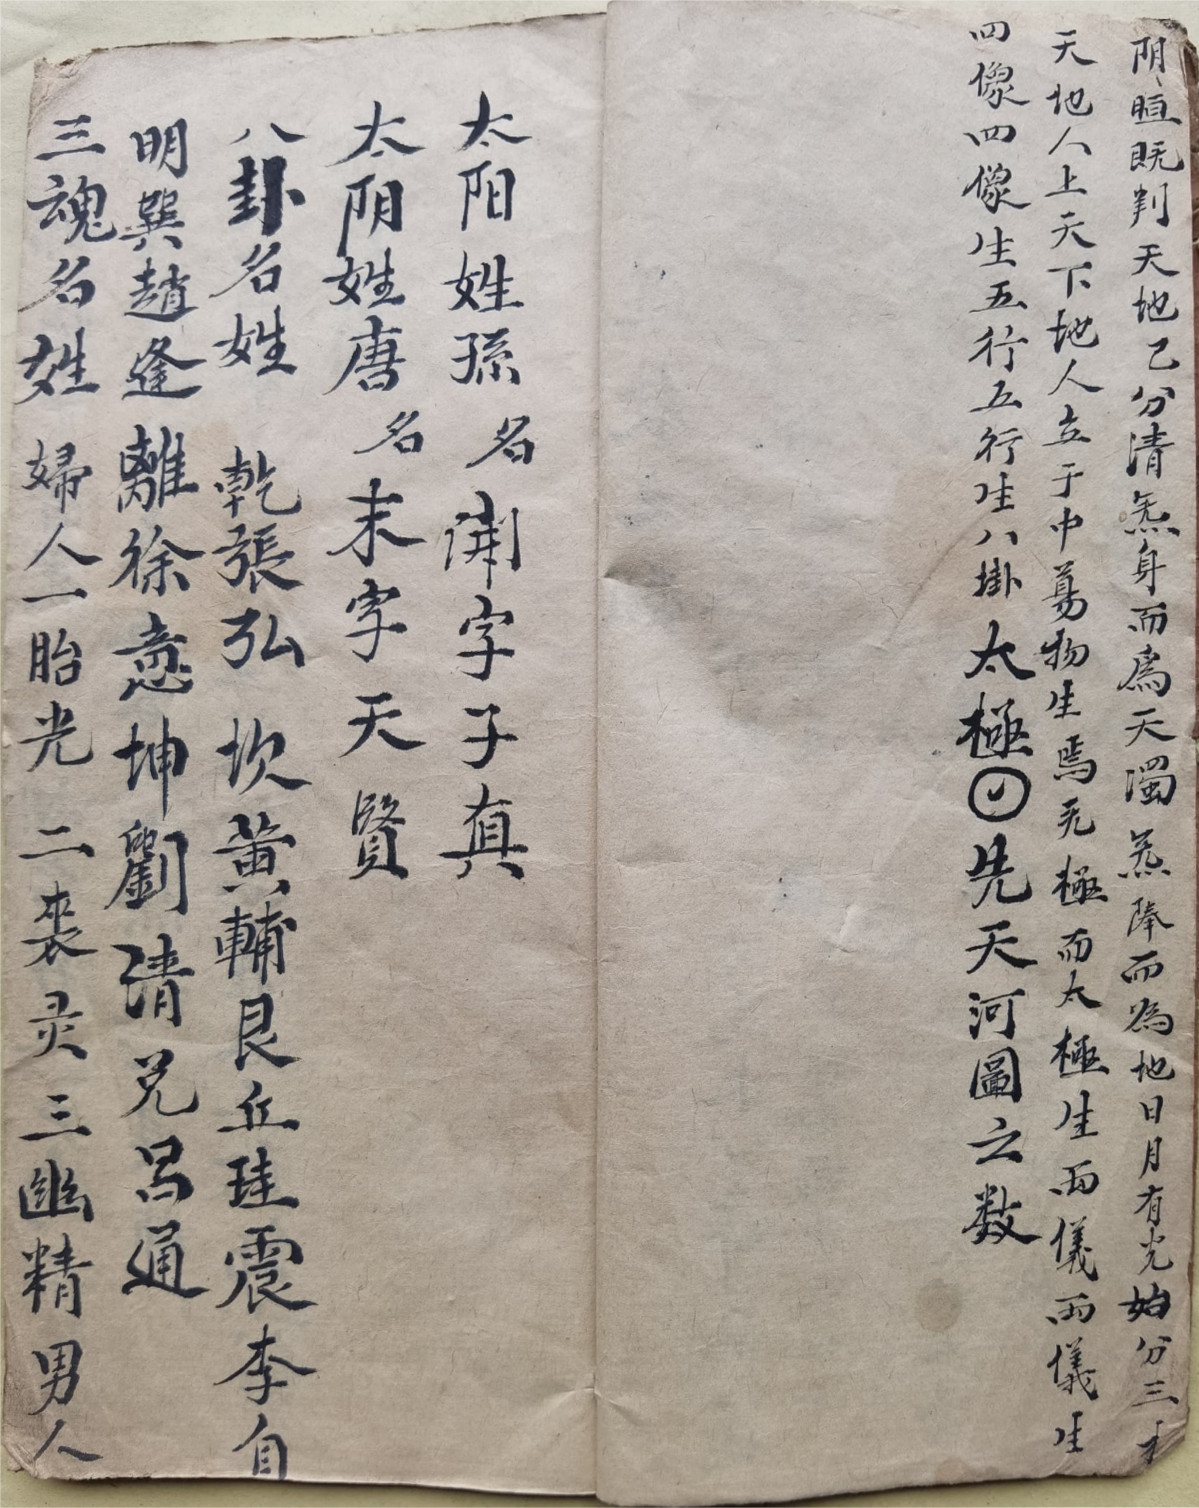 阴暄既判天地己分清炁身而為天濁炁降而為地日月有光始分三才
天地人上天下地人立于中萬物生焉无極而太極生両儀両儀生
四像四像生五行五行生八掛太極先天河圖之数
太阳姓孫名開字子真
太阴姓唐名末字天賢
八卦名姓乾張弘坎黄輔艮丘珪震李自
明巽趙逢離徐意坤劉清兑吕通
三魂名姓婦人一胎光二裘灵三幽精男人